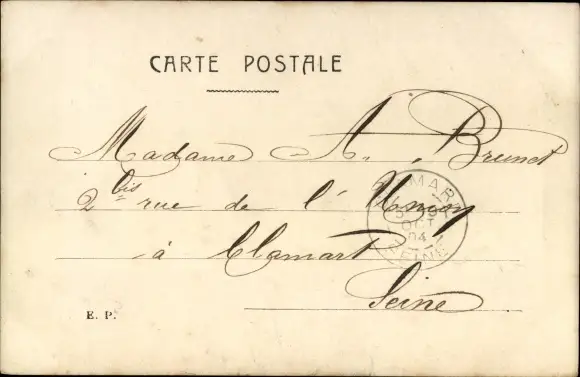 CARTE POSTALE
Madame A. Brunet
2 bis rue de l'Union
à Clamart
Seine
E. P.
OCT
04
SEINE